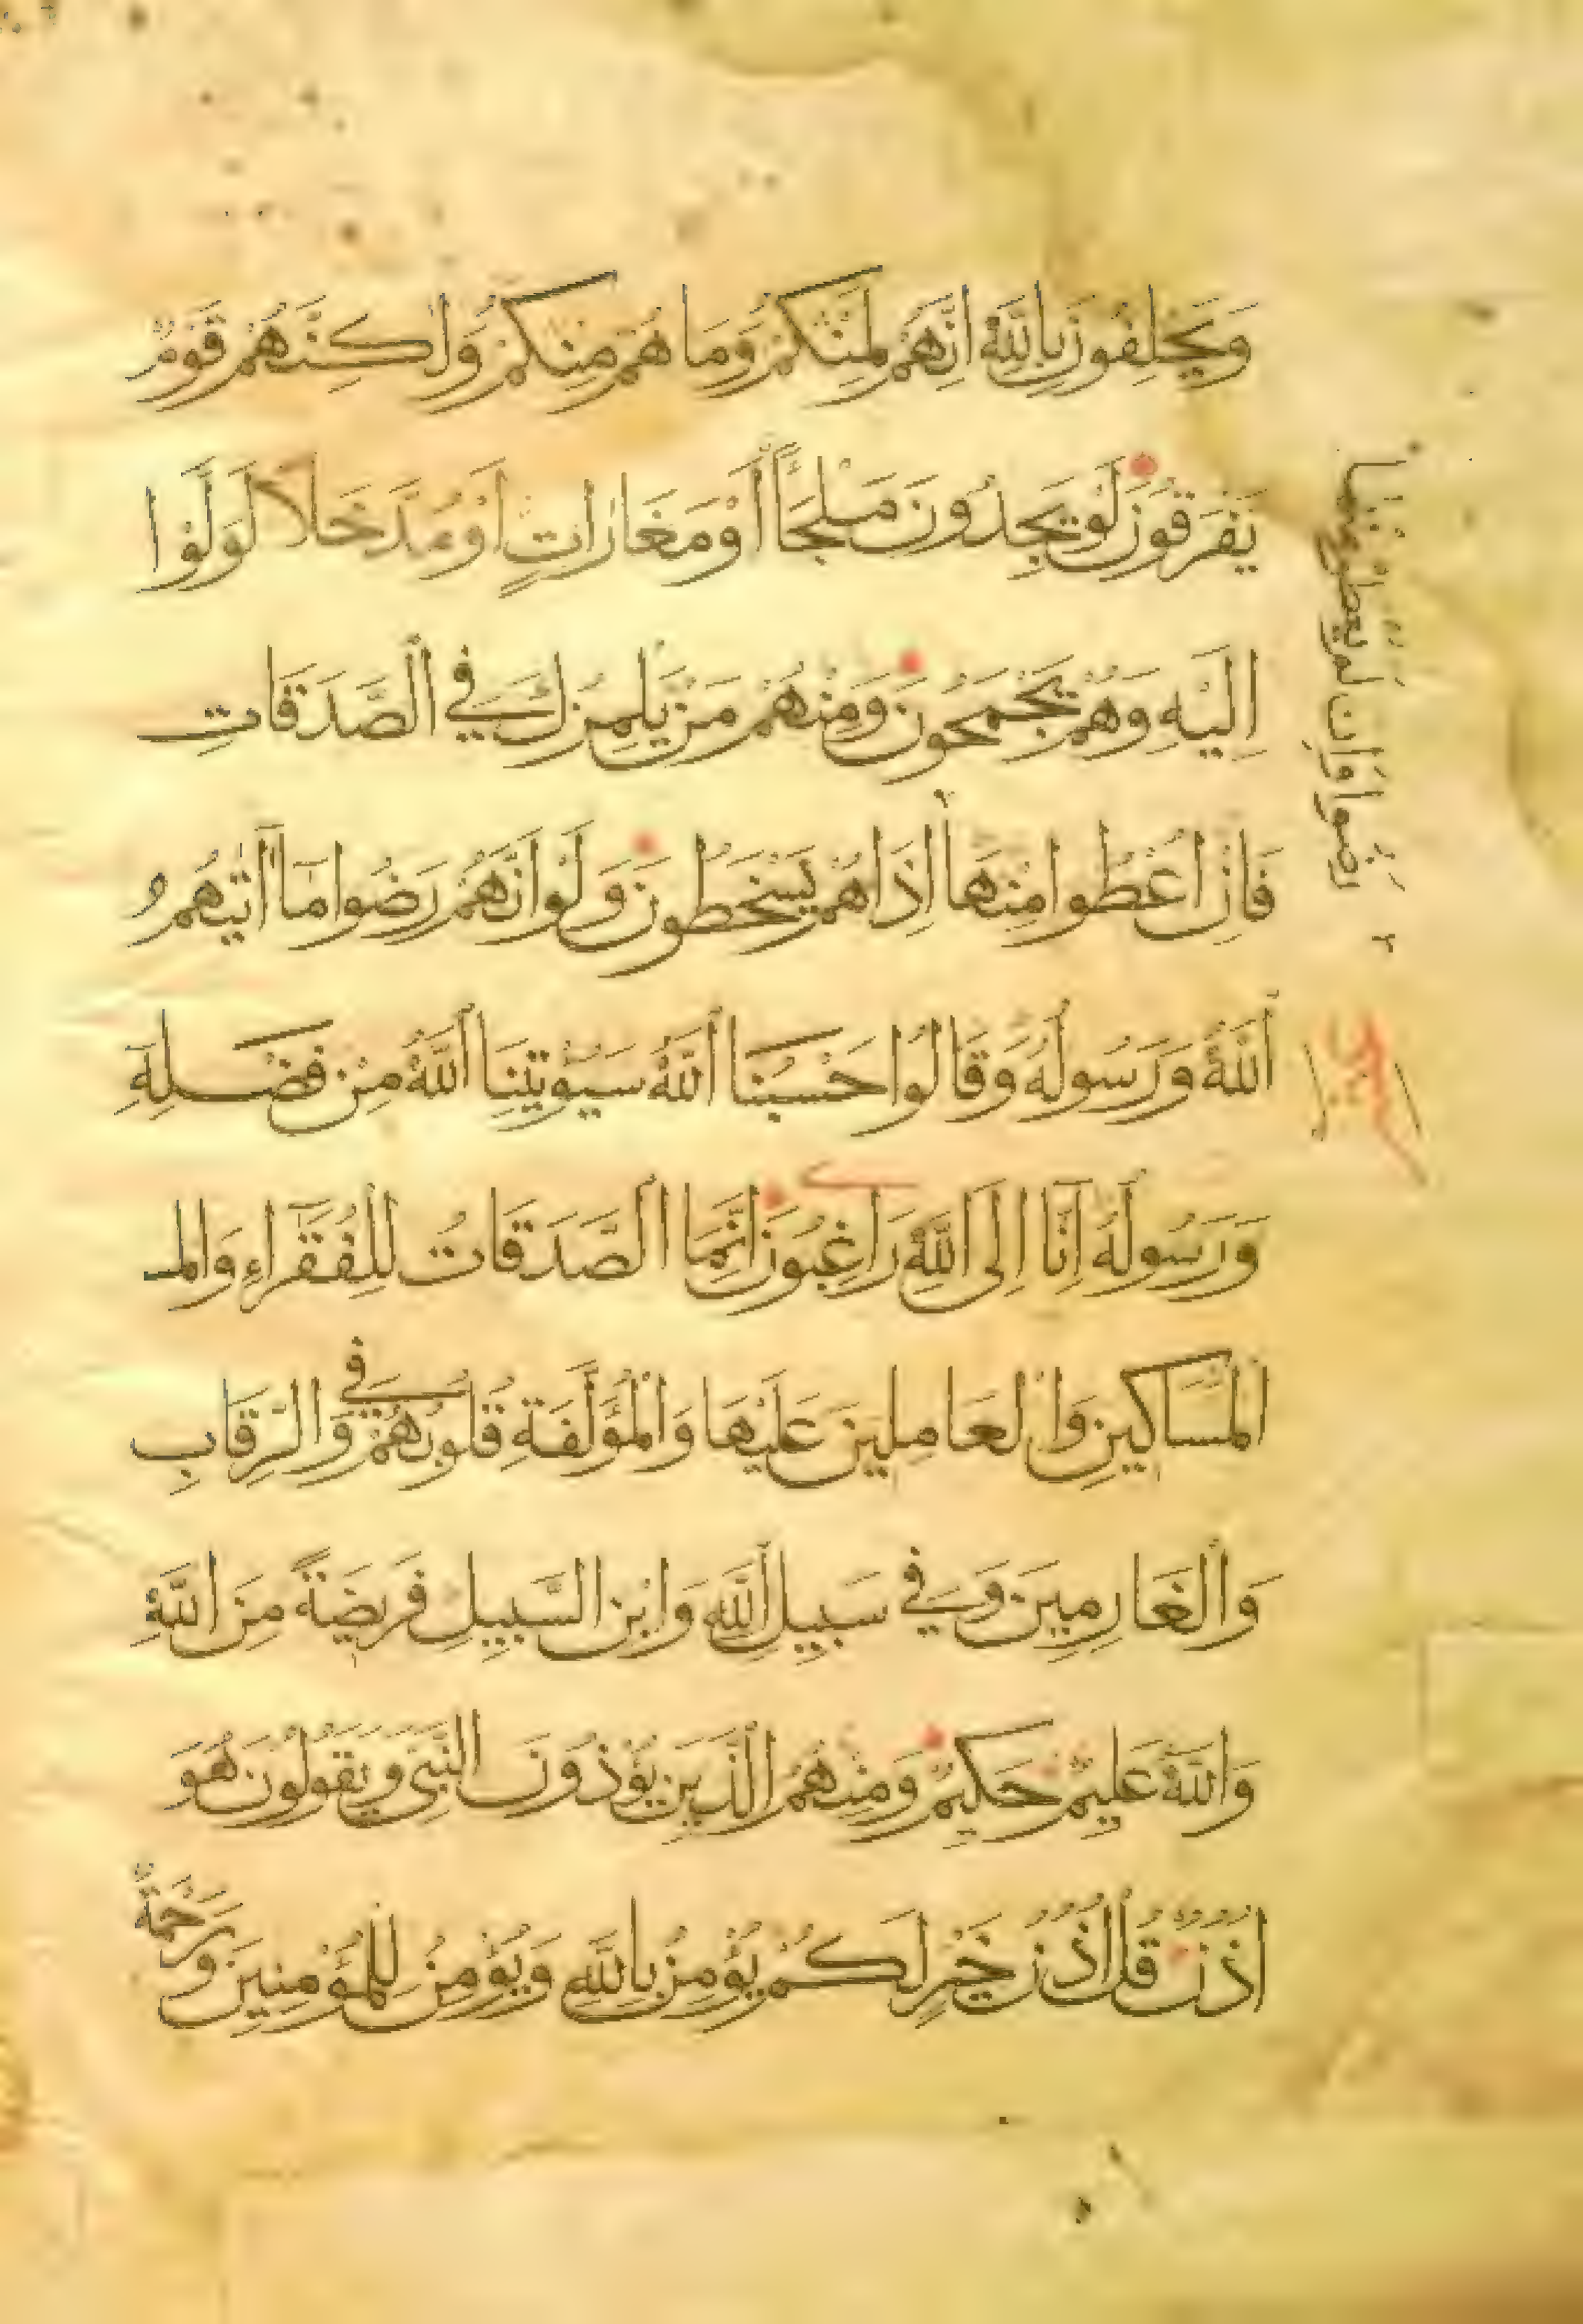 وَيَحْلِفُونَ بِاللَّهِ اِنَّهُمْ لَمِنْكُمْ وَمَا هُمْ مِنْكُمْ وَلٰكِنَّهُمْ قَوْمٌ
يَفْرَقُونَ لَوْ يَجِدُونَ مَلْجَأً أَوْ مَغَارَاتٍ اَوْ مُدَّخَلًا لَوَلَّوْا ا
اِلَيْهِ وَهُمْ يَجْمَحُونَ وَمِنْهُمْ مَنْ يَلْمِزُكَ فِي الصَّدَقَاتِ
فَاِنْ اُعْطُوا مِنْهَا اِذَا هُمْ يَسْخَطُونَ وَلَوْ اَنَّهُمْ رَضُوا مَا اٰتٰيهُمُ
اللَّهُ وَرَسُولُهُ وَقَالُوا حَسْبُنَا اللَّهُ سَيُؤْتِينَا اللَّهُ مِنْ فَضْلِهِ
وَرَسُولُهُ اِنَّا اِلَى اللَّهِ رَاغِبُونَ اِنَّمَا الصَّدَقَاتُ لِلْفُقَرَاءِ وَالمـ
الْمَسَاكِينِ وَالْعَامِلِينَ عَلَيْهَا وَالْمُؤَلَّفَةِ قُلُوبُهُمْ وَفِي الرِّقَابِ
وَالْغَارِمِينَ وَفِي سَبِيلِ اللَّهِ وَابْنِ السَّبِيلِ فَرِيضَةً مِنَ اللَّهِ
وَاللَّهُ عَلِيمٌ حَكِيمٌ وَمِنْهُمُ الَّذِينَ يُؤْذُونَ النَّبِيَّ وَيَقُولُونَ هُوَ
اُذُنٌ قُلْ اُذُنُ خَيْرٍ لَكُمْ يُؤْمِنُ بِاللَّهِ وَيُؤْمِنُ لِلْمُؤْمِنِينَ وَرَحْمَةٌ
رضوا وَاِن لَمْ يُعْطَوْا مِنْهَا